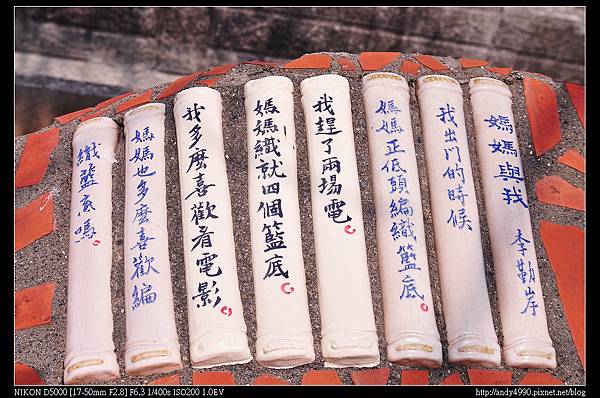 媽媽與我 李勤岸
我出門的時候
媽媽正低頭編織籃底
我趕了兩場電
媽媽織就四個籃底
我多麼喜歡看電影
媽媽也多麼喜歡編
織籃底嗎
NIKON D5000 [17-50mm F2.8] F6.3 1/400s ISO200 1.0EV
http://andy4990.pixnet.net/blog